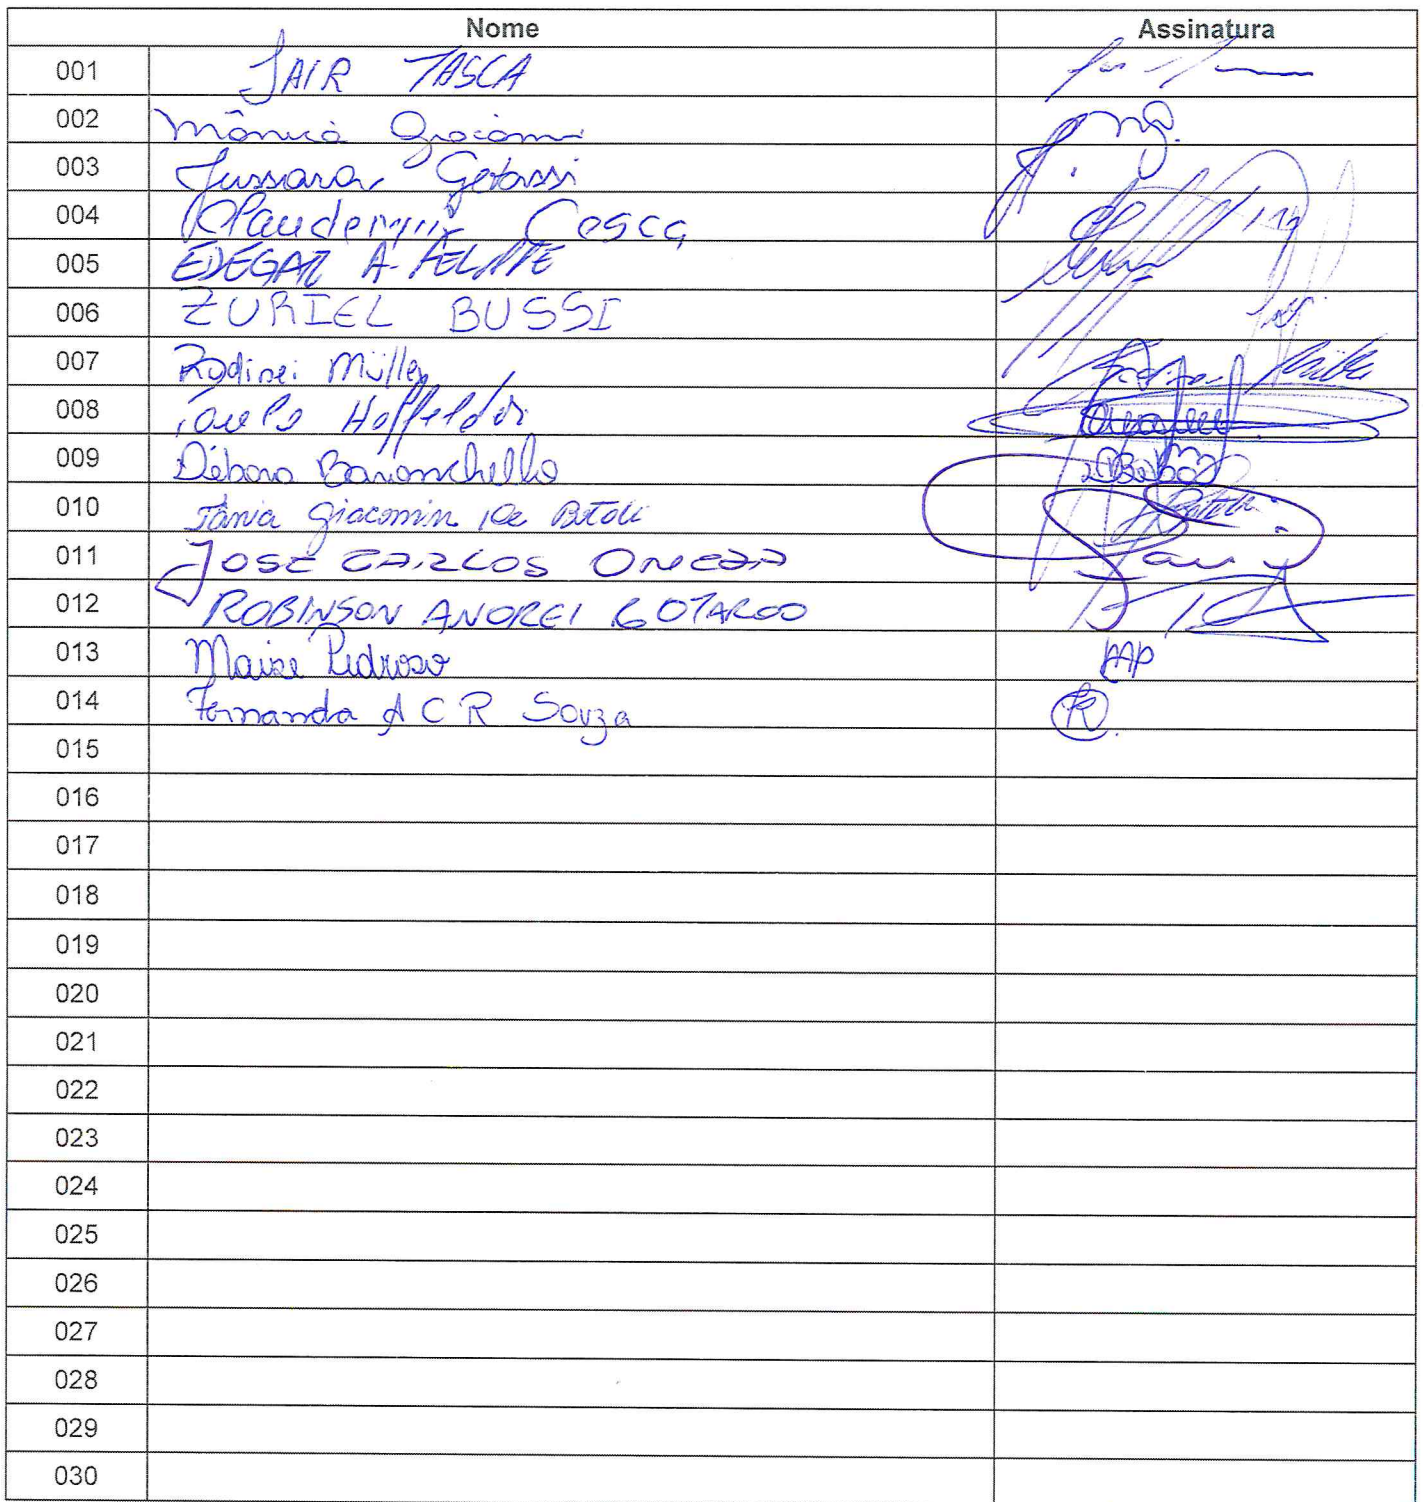 Nome Assinatura
001 JAIR TASCA
002 Mônica Giacomi
003 Jussara
004 Claudemir Cesca
005 EDEGAR A. FELIPPE
006 ZURIEL BUSSI
007 Rodinei Müller Müller
008 Paulo
009 Débora Debora
010 Tânia Giacomin De Bortoli
011 JOSE CARLOS
012 ROBINSON ANDREI GOTARDO
013 Maise Pedroso MP
014 Fernanda A C R Souza
015
016
017
018
019
020
021
022
023
024
025
026
027
028
029
030